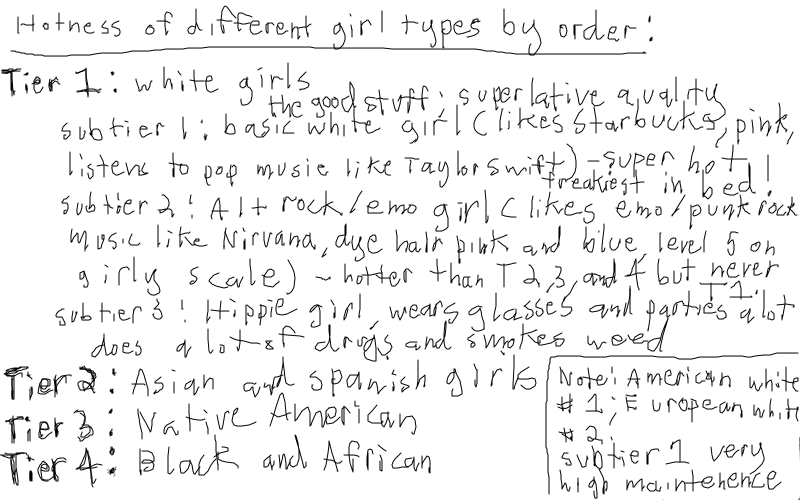 Hotness of different girl types by order:
Tier 1: white girls
the good stuff; superlative quality
subtier 1: basic white girl (likes Starbucks, pink,
listens to pop music like Taylor Swift) - super hot!
freakiest in bed!
subtier 2: Alt rock/emo girl (likes emo/punk rock
music like Nirvana, dye hair pink and blue, level 5 on
girly scale) ~ hotter than T2,3, and 4 but never
T1.
subtier 3: Hippie girl, wears glasses and parties a lot
does a lot of drugs and smokes weed
Tier 2: Asian and spanish girls
Tier 3: Native American
Tier 4: Black and African
Note: American white
#1; European white
#2;
subtier 1 very
high maintenence